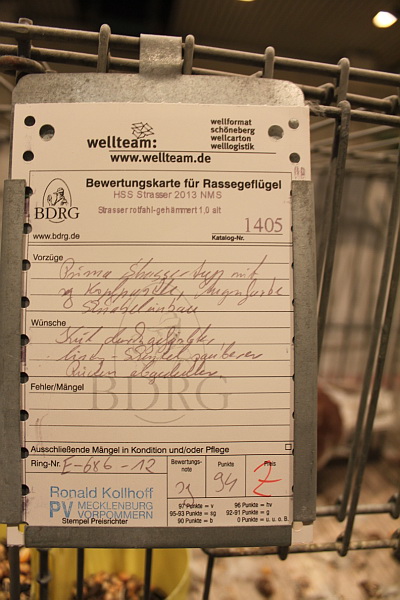 wellteam:
wellformat
schöneberg
wellcarton
welllogistik
www.wellteam.de
BDRG
Bewertungskarte für Rassegeflügel
HSS Strasser 2013 NMS
Strasser rotfahl-gehämmert 1,0 alt
www.bdrg.de
Katalog-Nr. 1405
Vorzüge
Prima Strasser typ mit
Wünsche
Rücken abgedeckter
Fehler/Mängel
BDRG
Ausschließende Mängel in Kondition und/oder Pflege
Ring-Nr. E-686-12
Bewertungs-
note
sg
Punkte
94
Preis
Z
Ronald Kollhoff
PV MECKLENBURG
VORPOMMERN
Stempel Preisrichter
97 Punkte = v 96 Punkte = hv
93-95 Punkte = sg 92-91 Punkte = g
90 Punkte = b 0 Punkte = u. u. o. B.